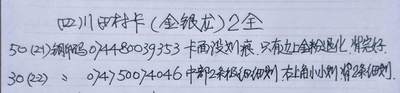 四川田村卡（金银龙）2全
50（21）钢印码074480039353 卡面没划痕 只有边上金粉退化 背完好.
30（22） 〃 074750074046 中部2条极细细划 右上角小小划 背2条细划.